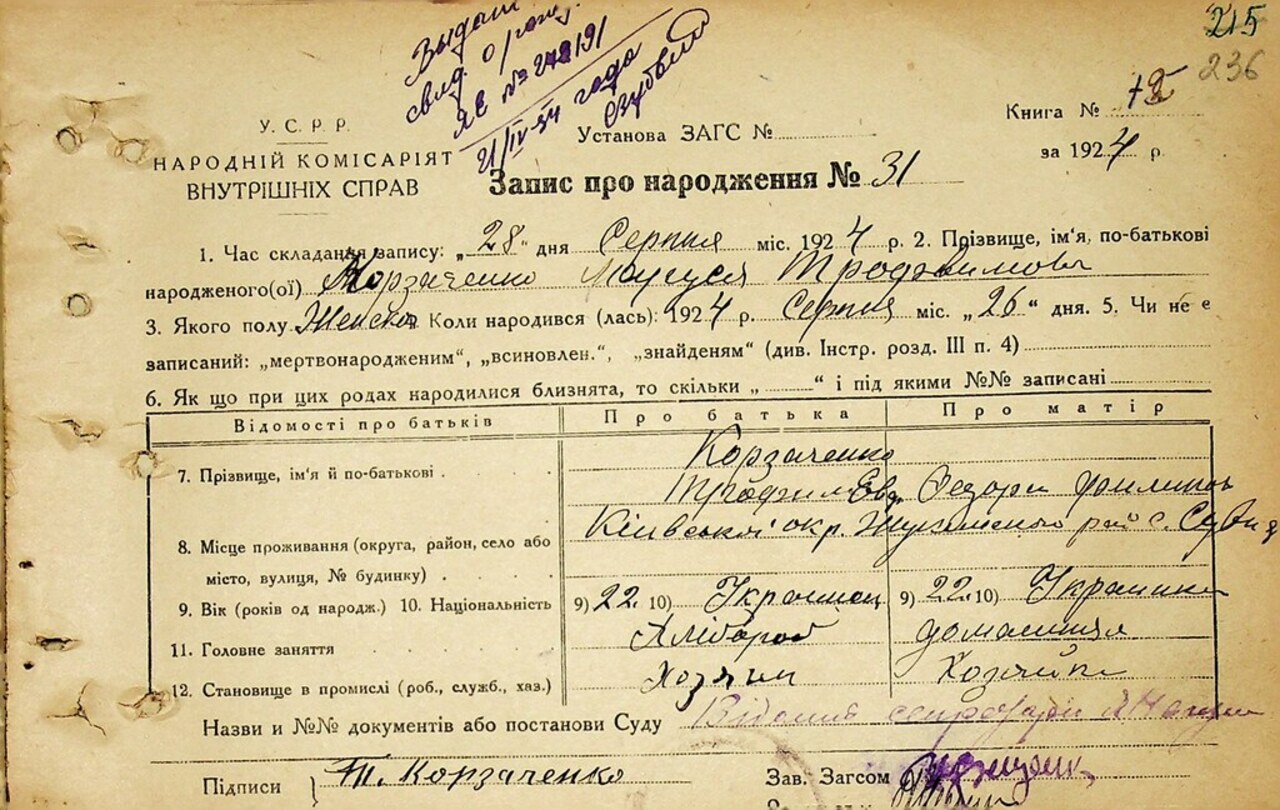 215
236
Выдано
свид. о рожд.
ЯЕ № 248191
21/IV-54 года
У.С.Р.Р.
НАРОДНІЙ КОМІСАРІЯТ
ВНУТРІШНІХ СПРАВ
Установа ЗАГС №
Книга №
за 1924 р.
Запис про народження № 31
1. Час складання запису: „28“ дня Серпня міс. 1924 р. 2. Прізвище, ім'я, по-батькові
народженого(ої) Корзаченко Маруся Трофимовна
3. Якого полу Женска Коли народився (лась): 1924 р. Серпня міс. „26“ дня. 5. Чи не є
записаний: „мертвонародженим“, „всиновлен.“, „знайденям“ (див. Інстр. розд. III п. 4)
6. Як що при цих родах народилися близнята, то скільки „ “ і під якими №№ записані
Відомості про батьків Про батька Про матір
7. Прізвище, ім'я й по-батькові Корзаченко
Трофим Евд. Федора Филипов
Київської окр. рай с.
8. Місце проживання (округа, район, село або
місто, вулиця, № будинку)
9. Вік (років од народж.) 10. Національність 9) 22. 10) Українец 9) 22. 10) Украинка
11. Головне заняття Хлібороб домашня
12. Становище в промислі (роб., служб., хаз.) Хозяин Хозяйка
Назви и №№ документів або постанови Суду
Підписи Т. Корзаченко Зав. Загсом